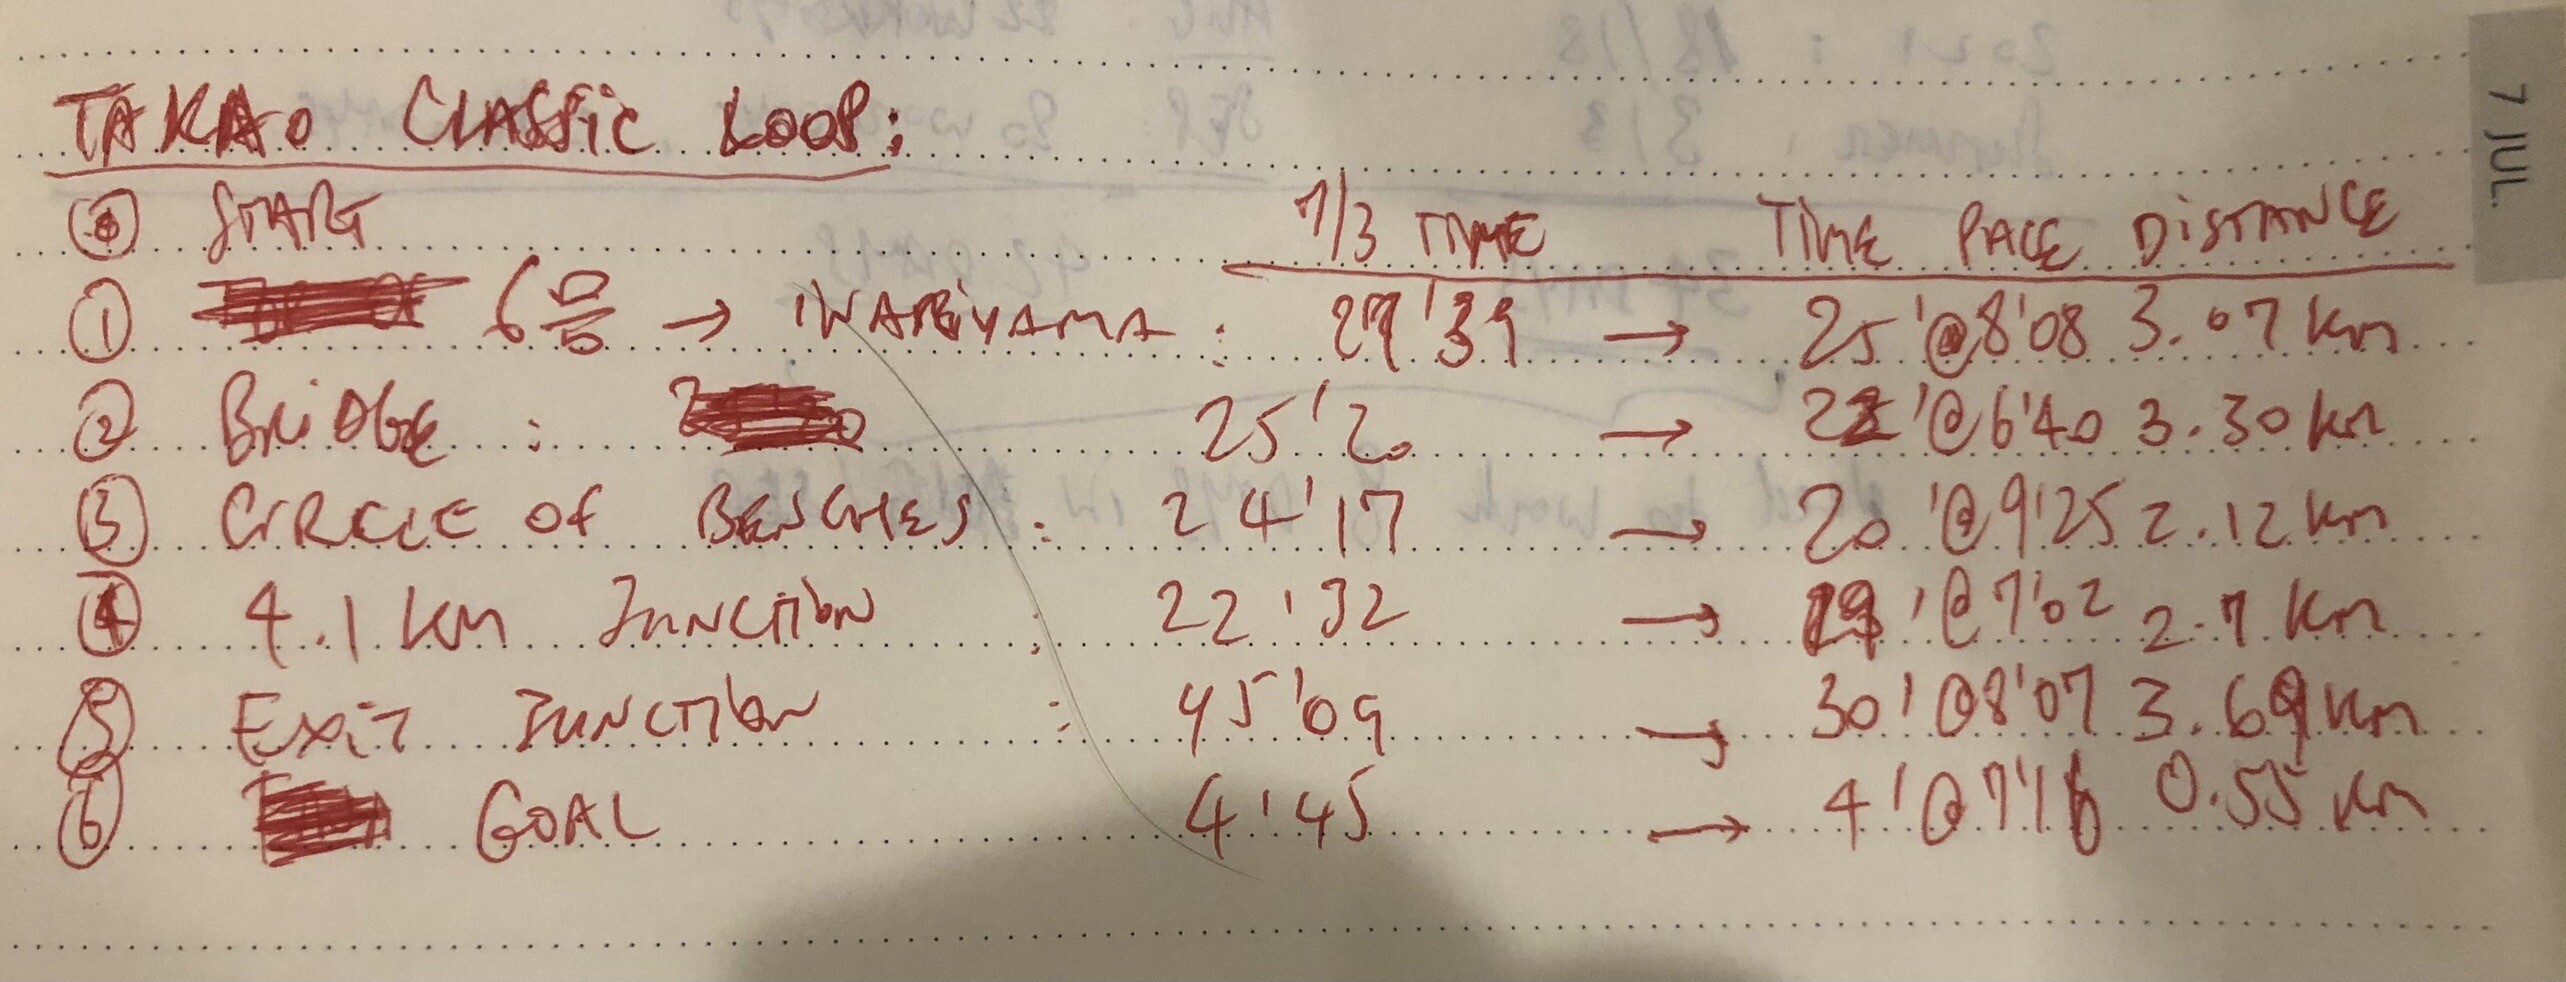 TAKAO CLASSIC LOOP:
7 JUL
⓪ START 7/3 TIME TIME PACE DISTANCE
① 6号 → INARIYAMA : 27'39 → 25'@8'08 3.07 km
② BRIDGE : 25'20 → 22'@6'40 3.30 km
③ CIRCLE OF BENCHES : 24'17 → 20'@9'25 2.12 km
④ 4.1 km JUNCTION : 22'32 → 19'@7'02 2.7 km
⑤ EXIT JUNCTION : 45'09 → 30'@8'07 3.69 km
⑥ GOAL 4'45 → 4'@7'16 0.55 km